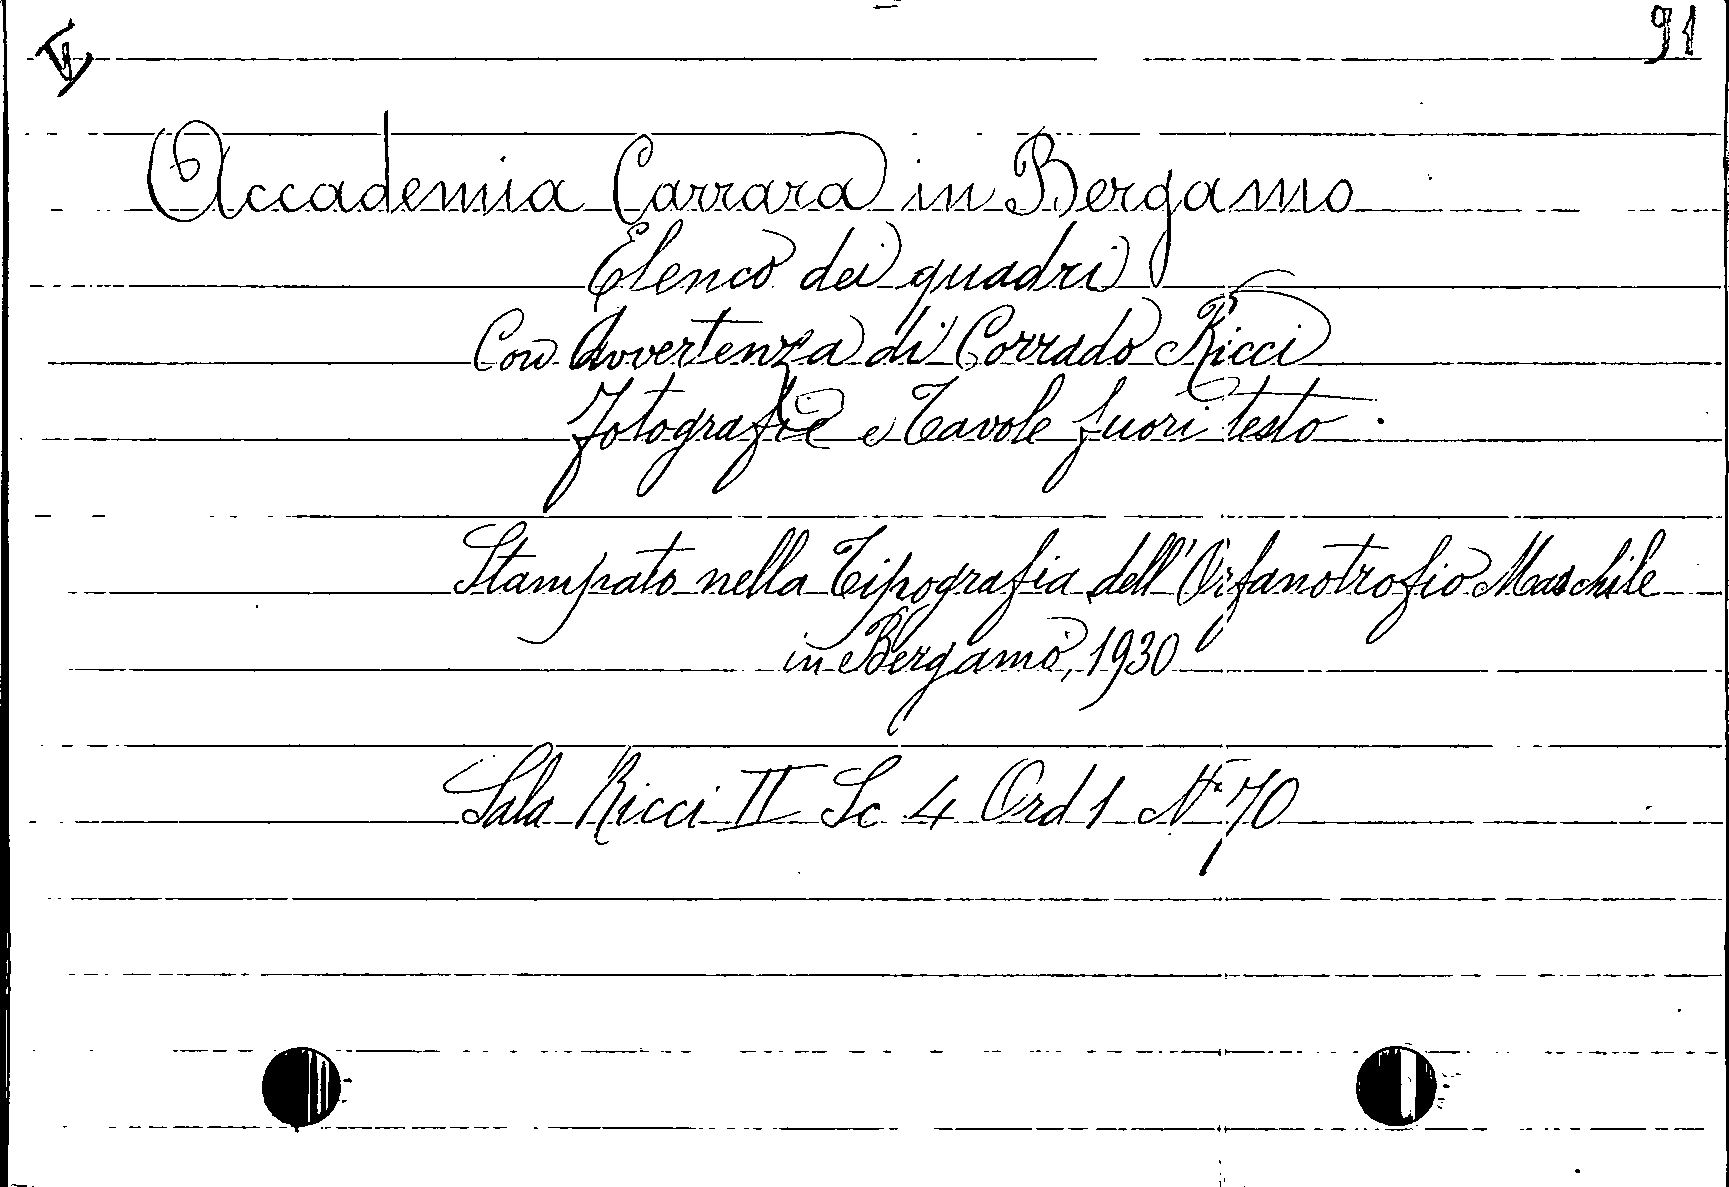 91
Accademia Carrara in Bergamo
Elenco dei quadri
Con Avvertenza di Corrado Ricci
fotografie e Tavole fuori testo.
Stampato nella Tipografia dell'Orfanotrofio Maschile
in Bergamo, 1930
Sala Ricci II Sc 4 Ord 1 N° 70